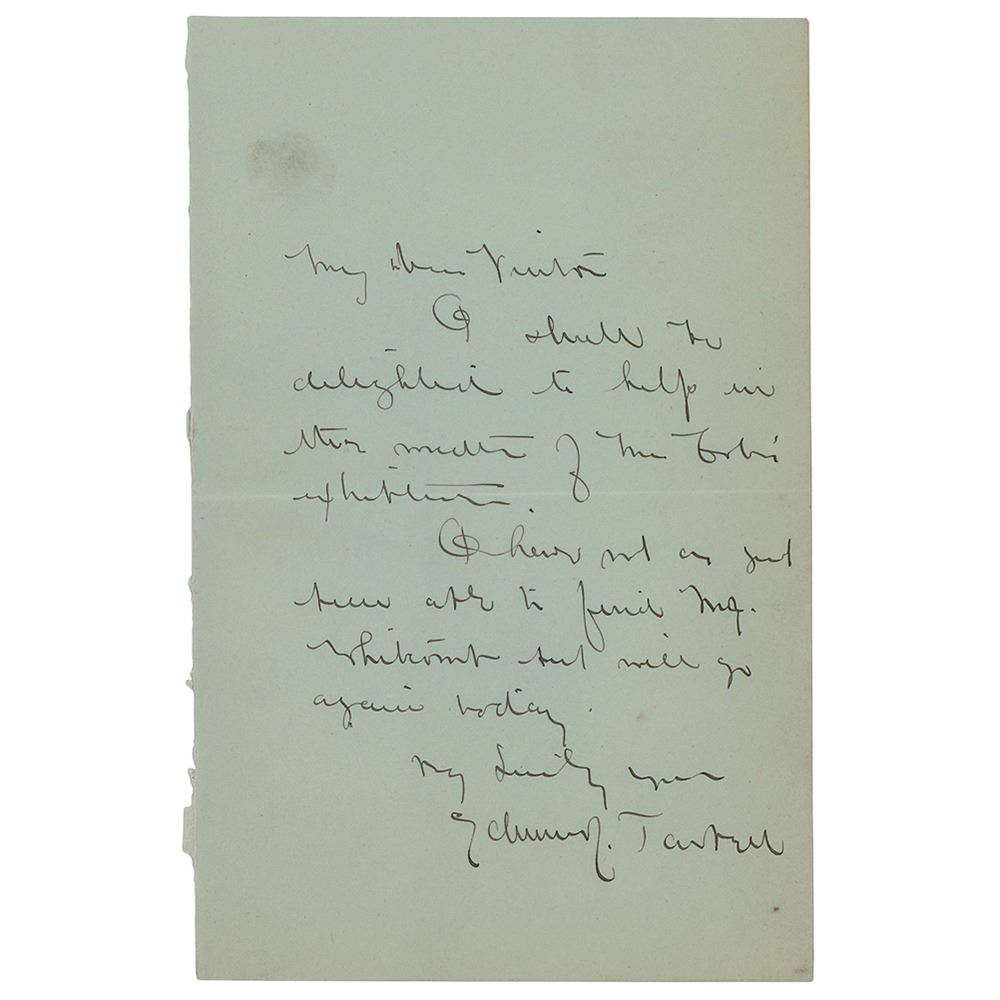 My dear Vinton
I shall be
delighted to help in
the matter of
exhibition.
I have not as yet
been able to find Mr.
Whitcomb but will go
again today.
yours
Edmund C. Tarbell